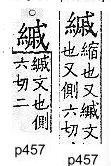 縬
縮也又縬文
也又側六切
縬
縬文也側
六切二
p457
p457